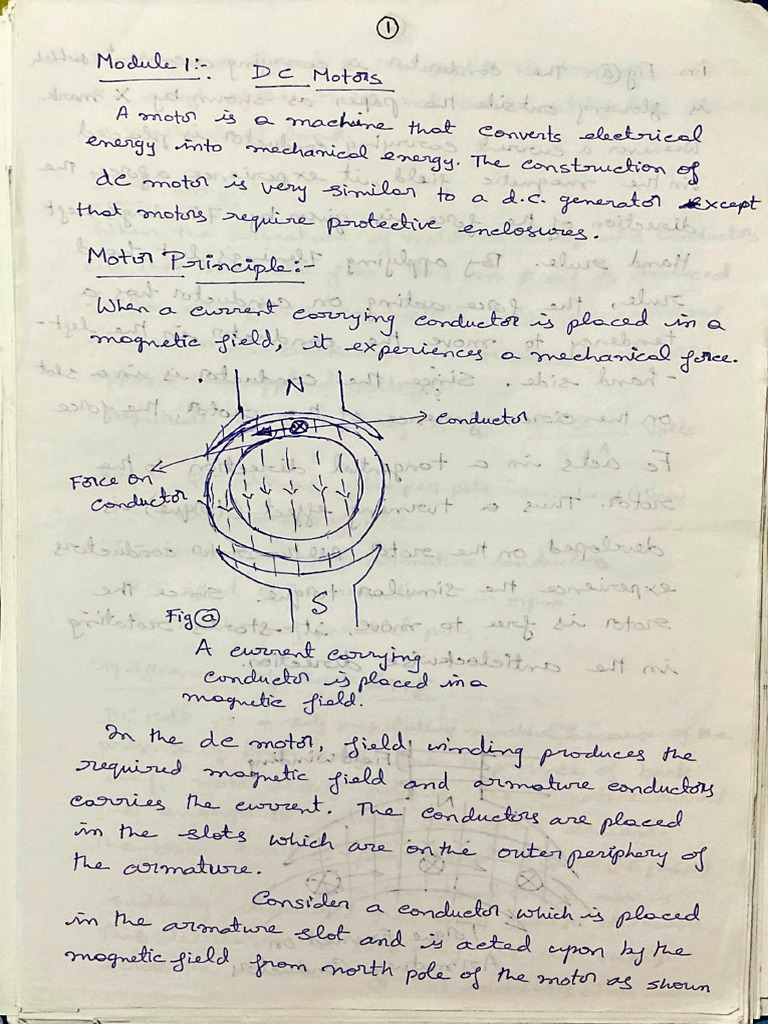 1
Module 1:- DC Motors
A motor is a machine that converts electrical
energy into mechanical energy. The construction of
dc motor is very similar to a d.c. generator except
that motors require protective enclosures.
Motor Principle:-
When a current carrying conductor is placed in a
magnetic field, it experiences a mechanical force.
N
Conductor
Force on
conductor
S
Fig (a)
A current carrying
conductor is placed in a
magnetic field.
In the dc motor, field winding produces the
required magnetic field and armature conductors
carries the current. The conductors are placed
in the slots which are on the outer periphery of
the armature.
Consider a conductor which is placed
in the armature slot and is acted upon by the
magnetic field from north pole of the motor as shown